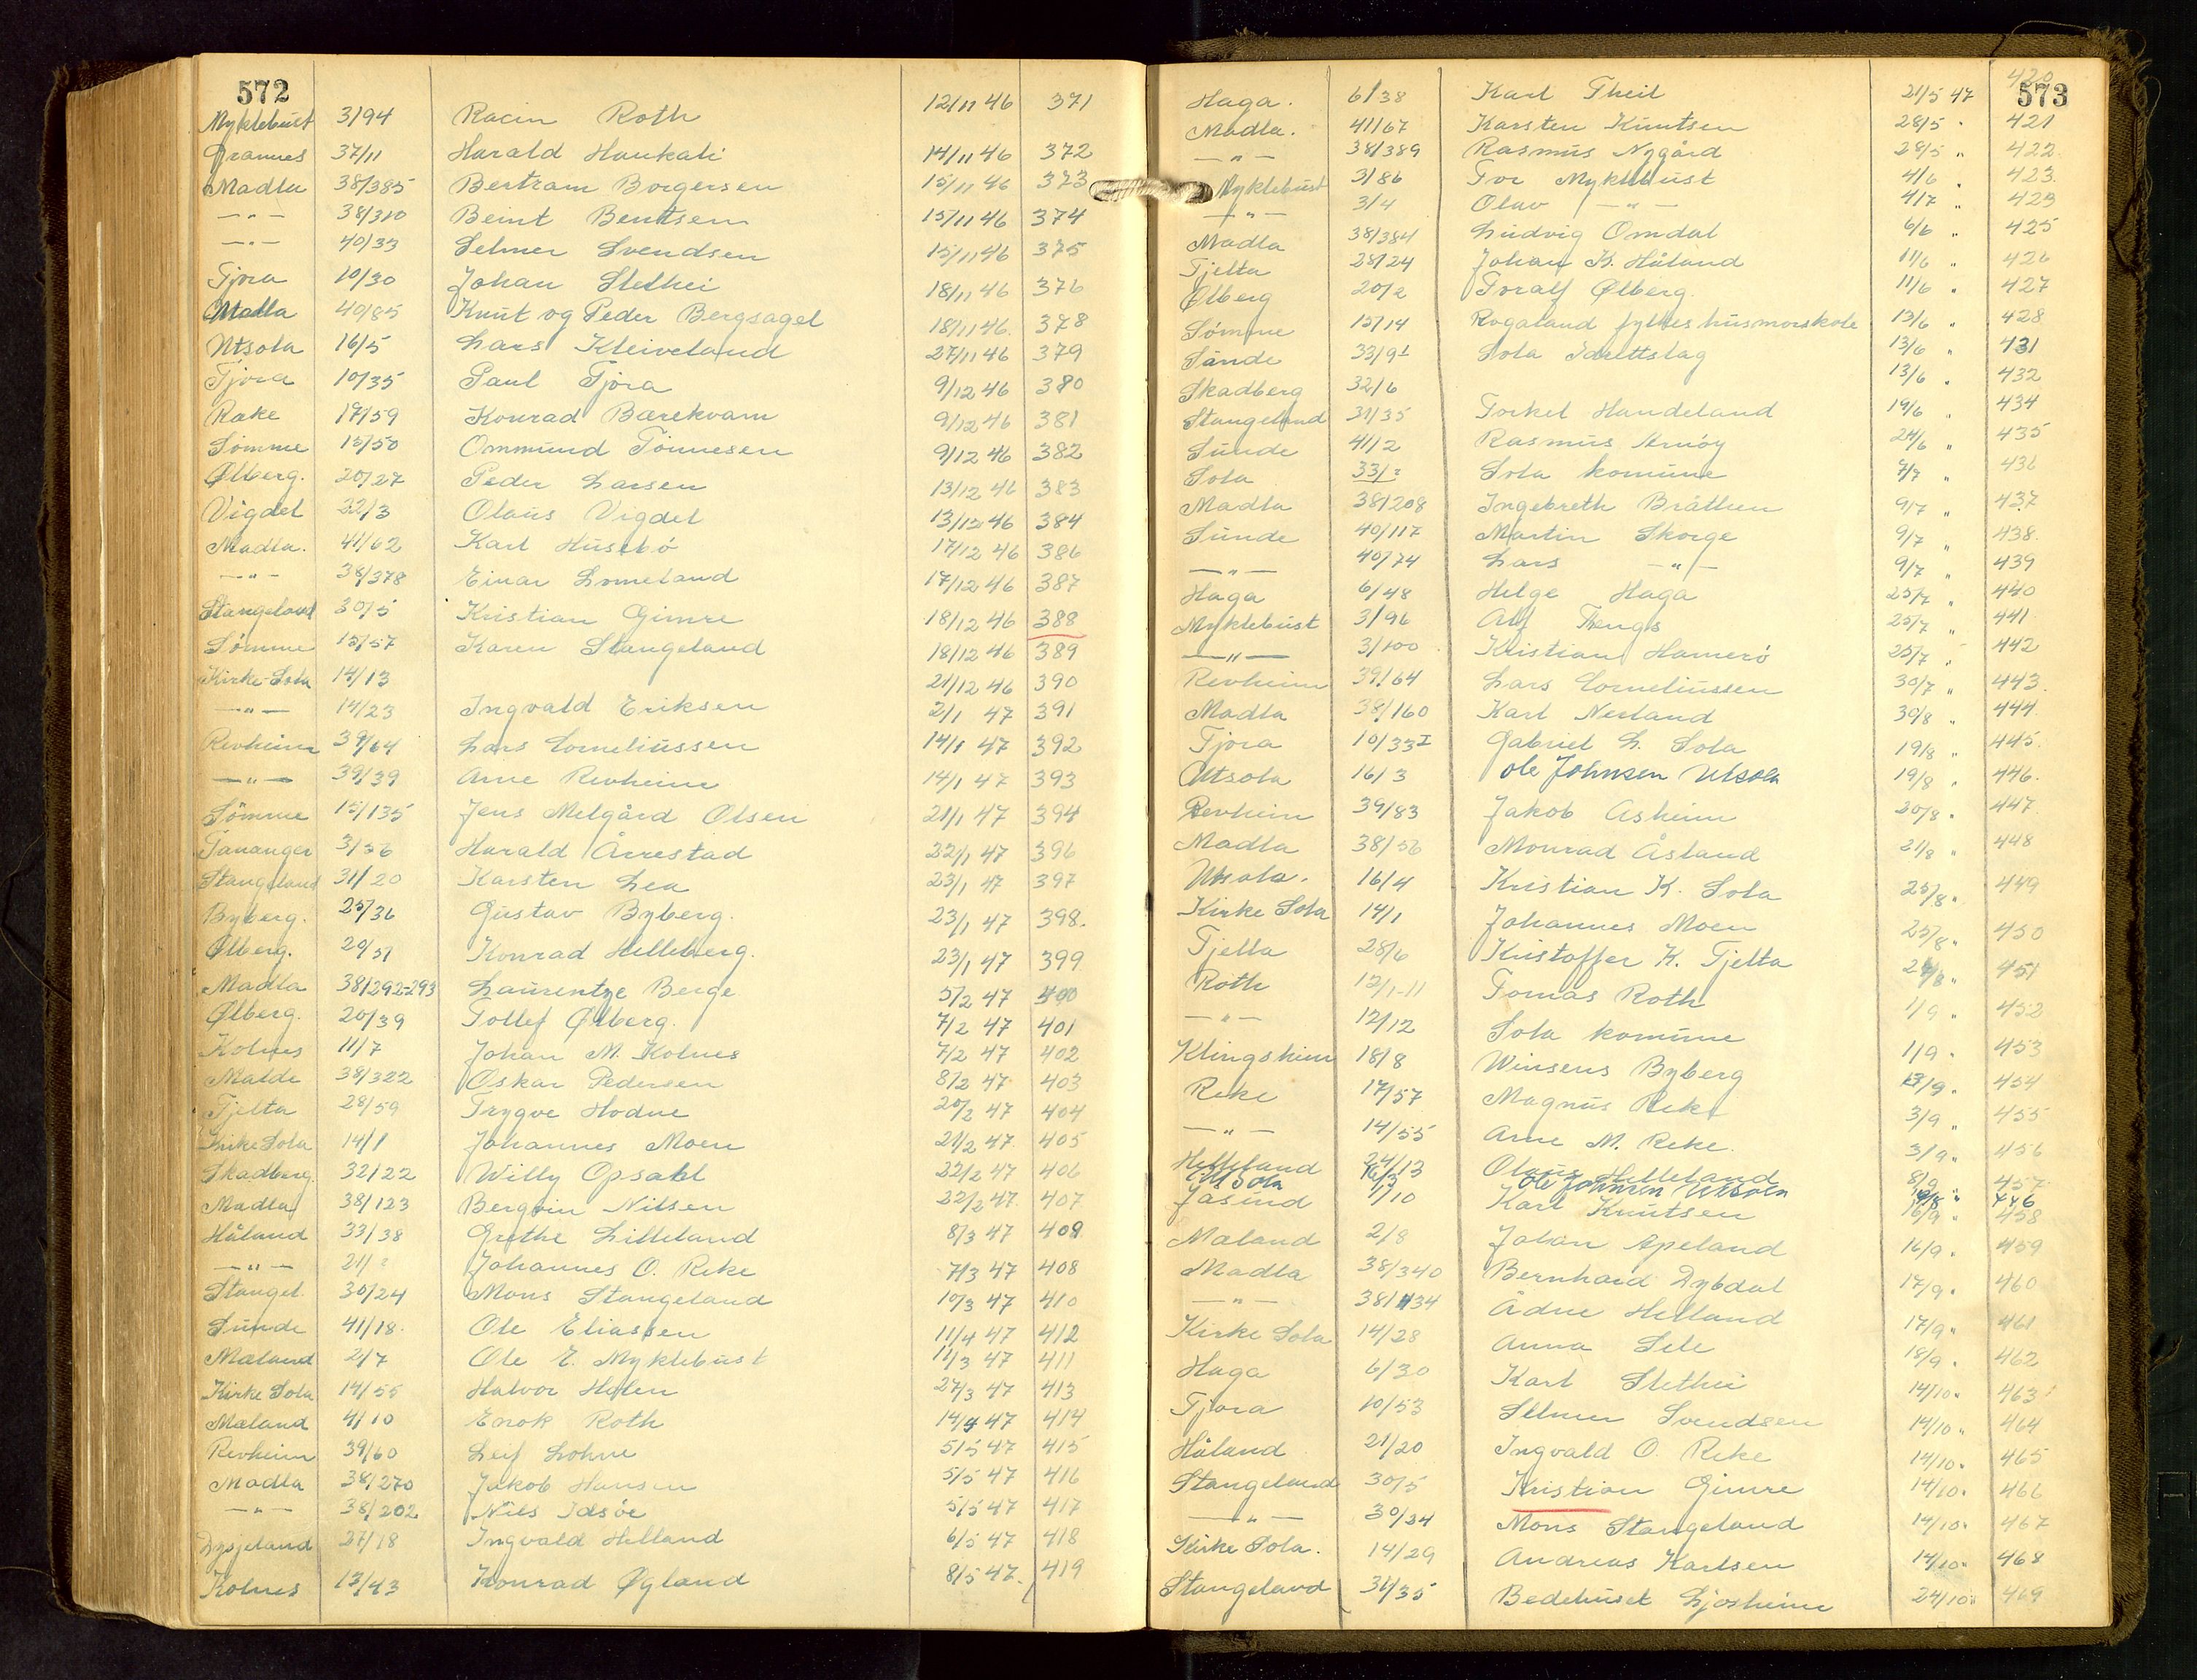 572
Myklebust 3/94 Racin Roth 12/11 46 371
Grannes 37/11 Harald Haukali 14/11 46 372
Madla 38/385 Bertram Borgersen 15/11 46 373
—"— 38/310 Beint Bentsen 15/11 46 374
—"— 40/33 Selmer Svendsen 15/11 46 375
Tjora 10/30 Johan Slethei 18/11 46 376
Madla 40/85 Knut og Peder Bergsagel 18/11 46. 378
Utsola 16/5 Lars Kleiveland 27/11 46 379
Tjora 10/35 Paul Tjora 9/12 46 380
Røke 17/59 Konrad Bærekvam 9/12 46 381
Sømme 15/50 Ommund Tønnesen 9/12 46 382
Ølberg. 20/27 Peder Larsen 13/12 46 383
Vigdel 22/3 Olaus Vigdel 13/12 46 384
Madla. 41/62 Karl Husebø 17/12 46 386
—"— 38/378 Einar Lomeland 17/12 46 387
Stangeland 30/5 Kristian Gimre 18/12 46 388
Sømme 15/57 Karen Stangeland 18/12 46 389
Kirke-Sola 14/13 21/12 46 390
—"— 14/23 Ingvald Eriksen 2/1 47 391
Revheim 39/64 Lars Corneliussen 14/1 47 392
—"— 39/39 Arne Revheim 14/1 47 393
Sømme 15/135 Jens Melgård Olsen 21/1 47 394
Tananger 3/36 Harald Årrestad 22/1 47 396
Stangeland 31/20 Karsten Lea 23/1 47 397
Byberg. 25/36 Gustav Byberg. 23/1 47 398.
Ølberg. 20/51 Konrad Helleberg. 23/1 47 399
Madla 38/292-293 Laurentze Berge 5/2 47 400
Ølberg. 20/39 Tollef Ølberg. 7/2 47 401
Kolnes 11/7 Johan M. Kolnes 7/2 47 402
Malde 38/322 Oskar Pedersen 8/2 47 403
Tjelta 28/59 Trygve Hodne 20/2 47 404
Kirke Sola 14/1 Johannes Moen 21/2 47. 405
Skadberg. 32/22 Willy Opsahl 22/2 47 406
Madla 38/123 Bergvin Nilsen 22/2 47. 407
Håland 33/38 Grethe Lilleland 8/3 47 409
—"— 21/2 Johannes O. Reke 7/3 47 408
Stangel. 30/24 Mons Stangeland 10/3 47 410
Sunde 41/18. Ole Eliassen 11/4 47 412
Mæland 2/7 Ole E. Myklebust 11/3 47 411
Kirke Sola 14/55 Halvor Helen 27/3 47 413
Mæland 4/10 Enok Roth 14/4 47 414
Revheim 39/60 Leif Lohne 5/5 47 415
Madla 38/270 Jakob Hansen 5/5 47 416
—"— 38/202 Nils Idsøe 5/5 47 417
Dysjeland 27/18 Ingvald Helland 6/5 47 418
Kolnes 13/43 Konrad Øgland 8/5 47. 419
573
Haga. 6/38 Karl Theil 21/5 47 420
Madla. 41/67 Karsten Knutsen 28/5 " 421
—"— 38/389 Rasmus Nygård 28/5 " 422.
Myklebust 3/86 Tor Myklebust 4/6 " 423.
—"— 3/4 Olav —"— 4/7 " 423
Madla 38/384 Ludvig Omdal 6/6 " 425
Tjelta 28/24 Johan K. Håland 11/6 " 426
Ølberg 20/2 Toralf Ølberg. 11/6 " 427
Sømme 15/14 Rogaland fylkes husmorskole 13/6 " 428
Sande 33/91 Sola Idrettslag 13/6 " 431
Skadberg 32/6 13/6 " 432
Stangeland 31/35 Torkel Handeland 19/6 " 434
Sunde 41/2 Rasmus Arnøy 24/6 " 435
Sola 33/2 Sola komune 7/7 " 436
Madla 38/208 Ingebreth Bråthen 9/7 " 437
Sunde 40/117 Martin Skorge 9/7 " 438.
—"— 40/74 Lars —"— 9/7 " 439
Haga 6/48 Helge Haga 25/7 " 440
Myklebust 3/96 Alf Thengs 25/7 " 441
—"— 3/100 Kristian Hamerø 25/7 " 442
Revheim 39/64 Lars Corneliussen 30/7 " 443.
Madla 38/160 Karl Nesland 30/8 " 444
Tjora 10/33 I Gabriel L. Sola 19/8 " 445.
Utsola 16/3 Ole Johnsen Utsola 19/8 " 446.
Revheim 39/83 Jakob Asheim 20/8 " 447
Madla 38/56 Monrad Åsland 21/8 " 448
Utsola. 16/4 Kristian K. Sola 25/8 " 449
Kirke Sola 14/1 Johannes Moen 25/8 " 450
Tjelta 28/6 Kristoffer K. Tjelta 28/8 " 451
Roth 12/1-11 Tomas Roth 1/9 " 452
—"— 12/12 Sola komune 1/9 " 453
Klingsheim 18/8 Winsens Byberg 13/9. 454
Reke 17/57 Magnus Reke 3/9 " 455
—"— 14/55 Arne M. Reke. 3/9 " 456
Helleland 24/13 Olaus Helleland 8/9 457
Ut Sola 16/3 Ole Johnsen Utsola 19/8 " 446
Jåsund 1/10 Karl Knutsen 16/9 " 458
Mæland 2/8 Johan Apeland 16/9. 459
Madla 38/340 Bernhard Dybdal 17/9. 460
—"— 38/434 Ådne Helland 17/9 " 461
Kirke Sola 14/28 Anna Sele 18/9. 462
Haga 6/30 Karl Slethei 14/10 " 463
Tjora 10/53 Selmer Svendsen 14/10 " 464
Håland 21/20 Ingvald O. Reke 14/10. 465
Stangeland 30/5 Kristian Gimre 14/10. 466
—"— 30/34 Mons Stangeland 14/10. 467
Kirke Sola. 14/29 Andreas Karlsen 14/10 " 468
Stangeland 31/35 Bedehuset Ljosheim 24/10 " 469